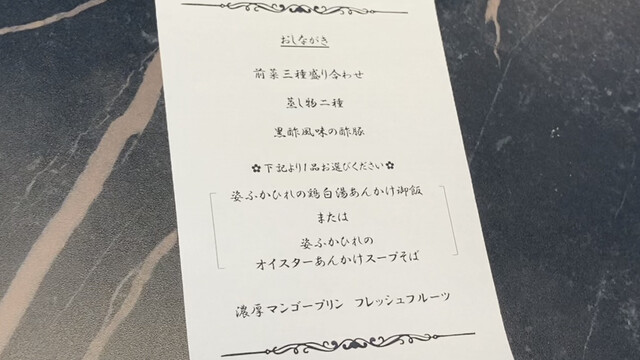 おしながき
前菜三種盛り合わせ
蒸し物二種
黒酢風味の酢豚
✿下記より1品お選びください✿
姿ふかひれの鶏白湯あんかけ御飯
または
姿ふかひれの
オイスターあんかけスープそば
濃厚マンゴープリン フレッシュフルーツ